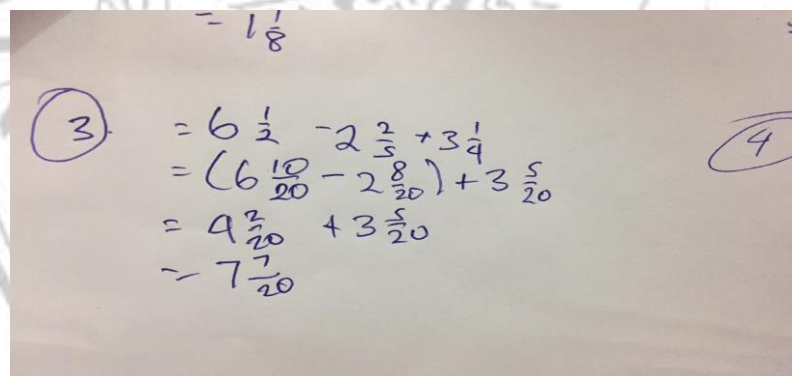 = 1 1/8
3. = 6 1/2 - 2 2/5 + 3 1/4
= (6 10/20 - 2 8/20) + 3 5/20
= 4 2/20 + 3 5/20
= 7 7/20
4